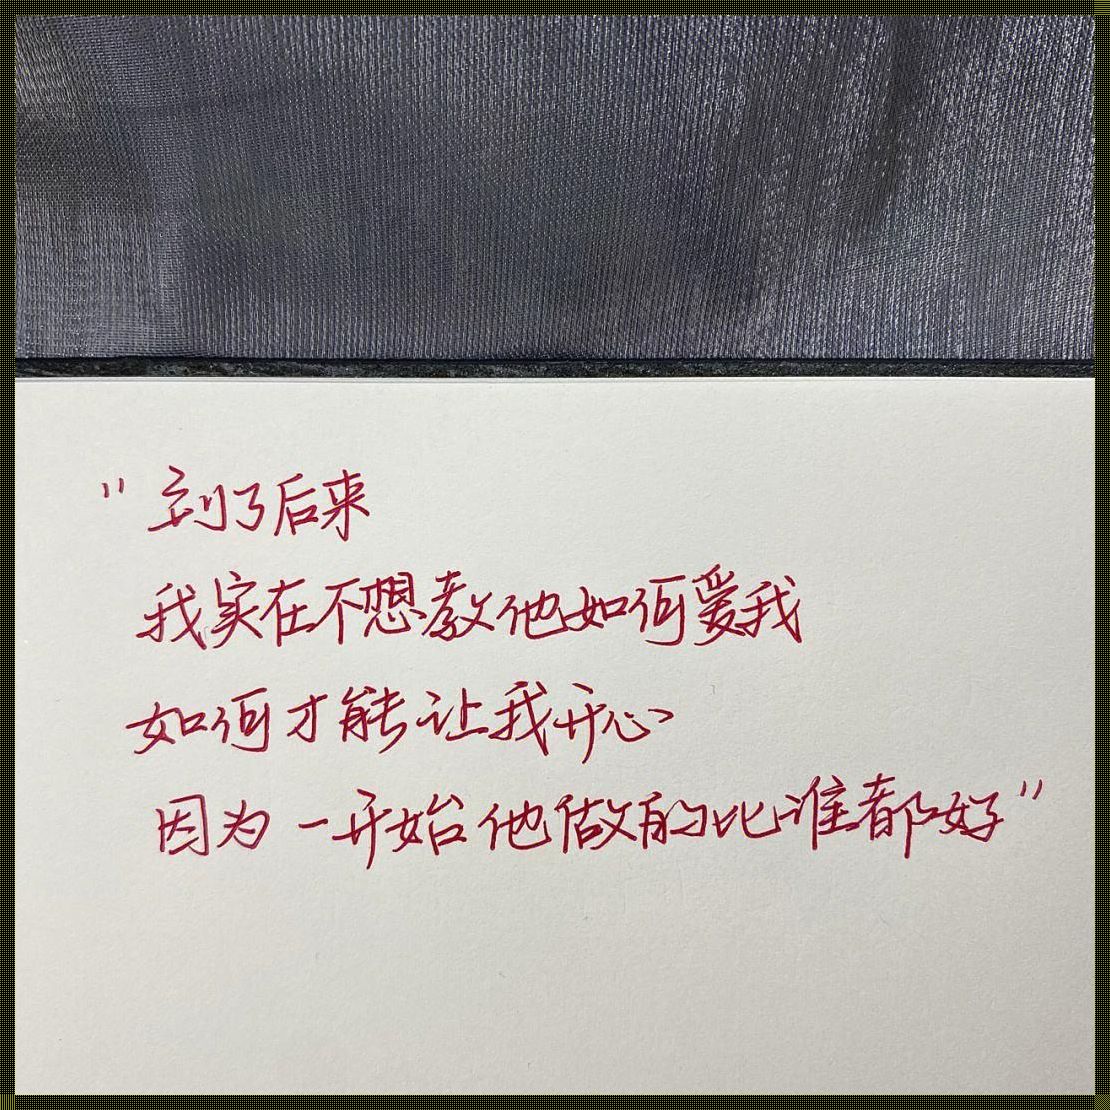 "到了后来
我实在不想教他如何爱我
如何才能让我开心
因为一开始他做的比谁都好"